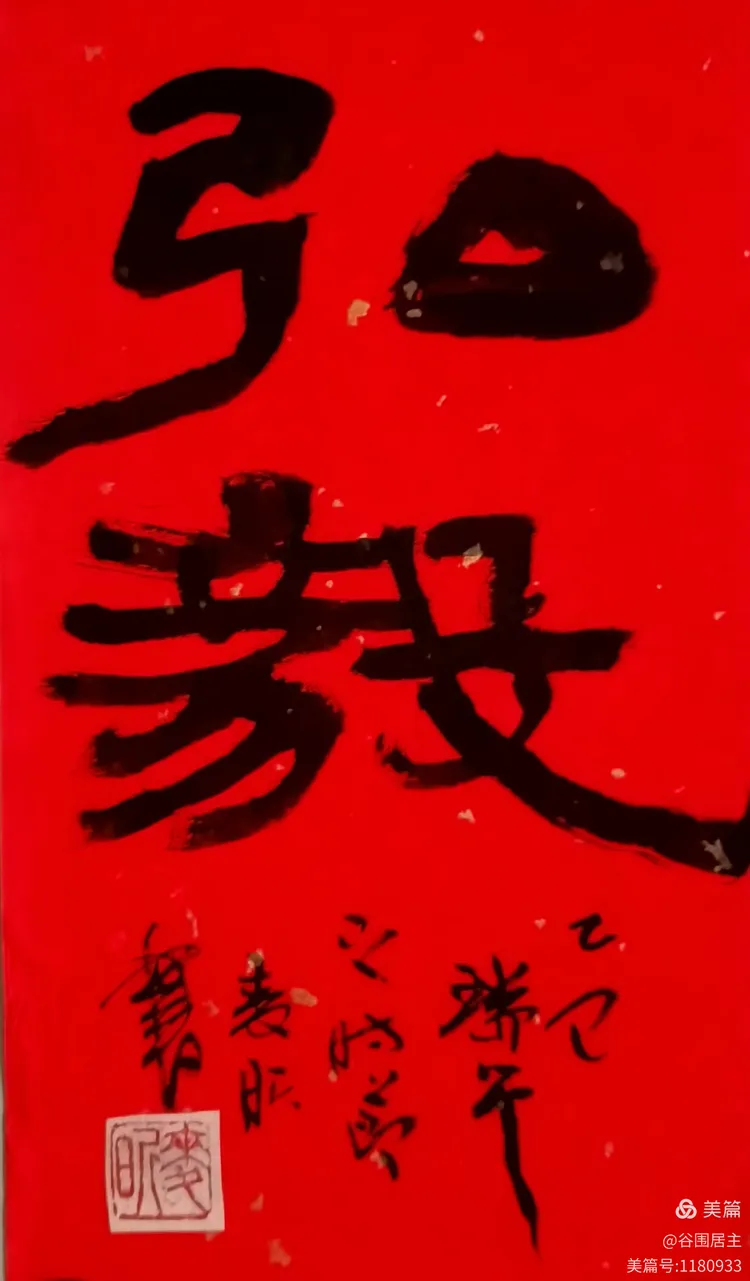 弘
毅
乙巳
瑞午
之時節
麦昕
麥昕
美篇
@谷围居主
美篇号:1180933